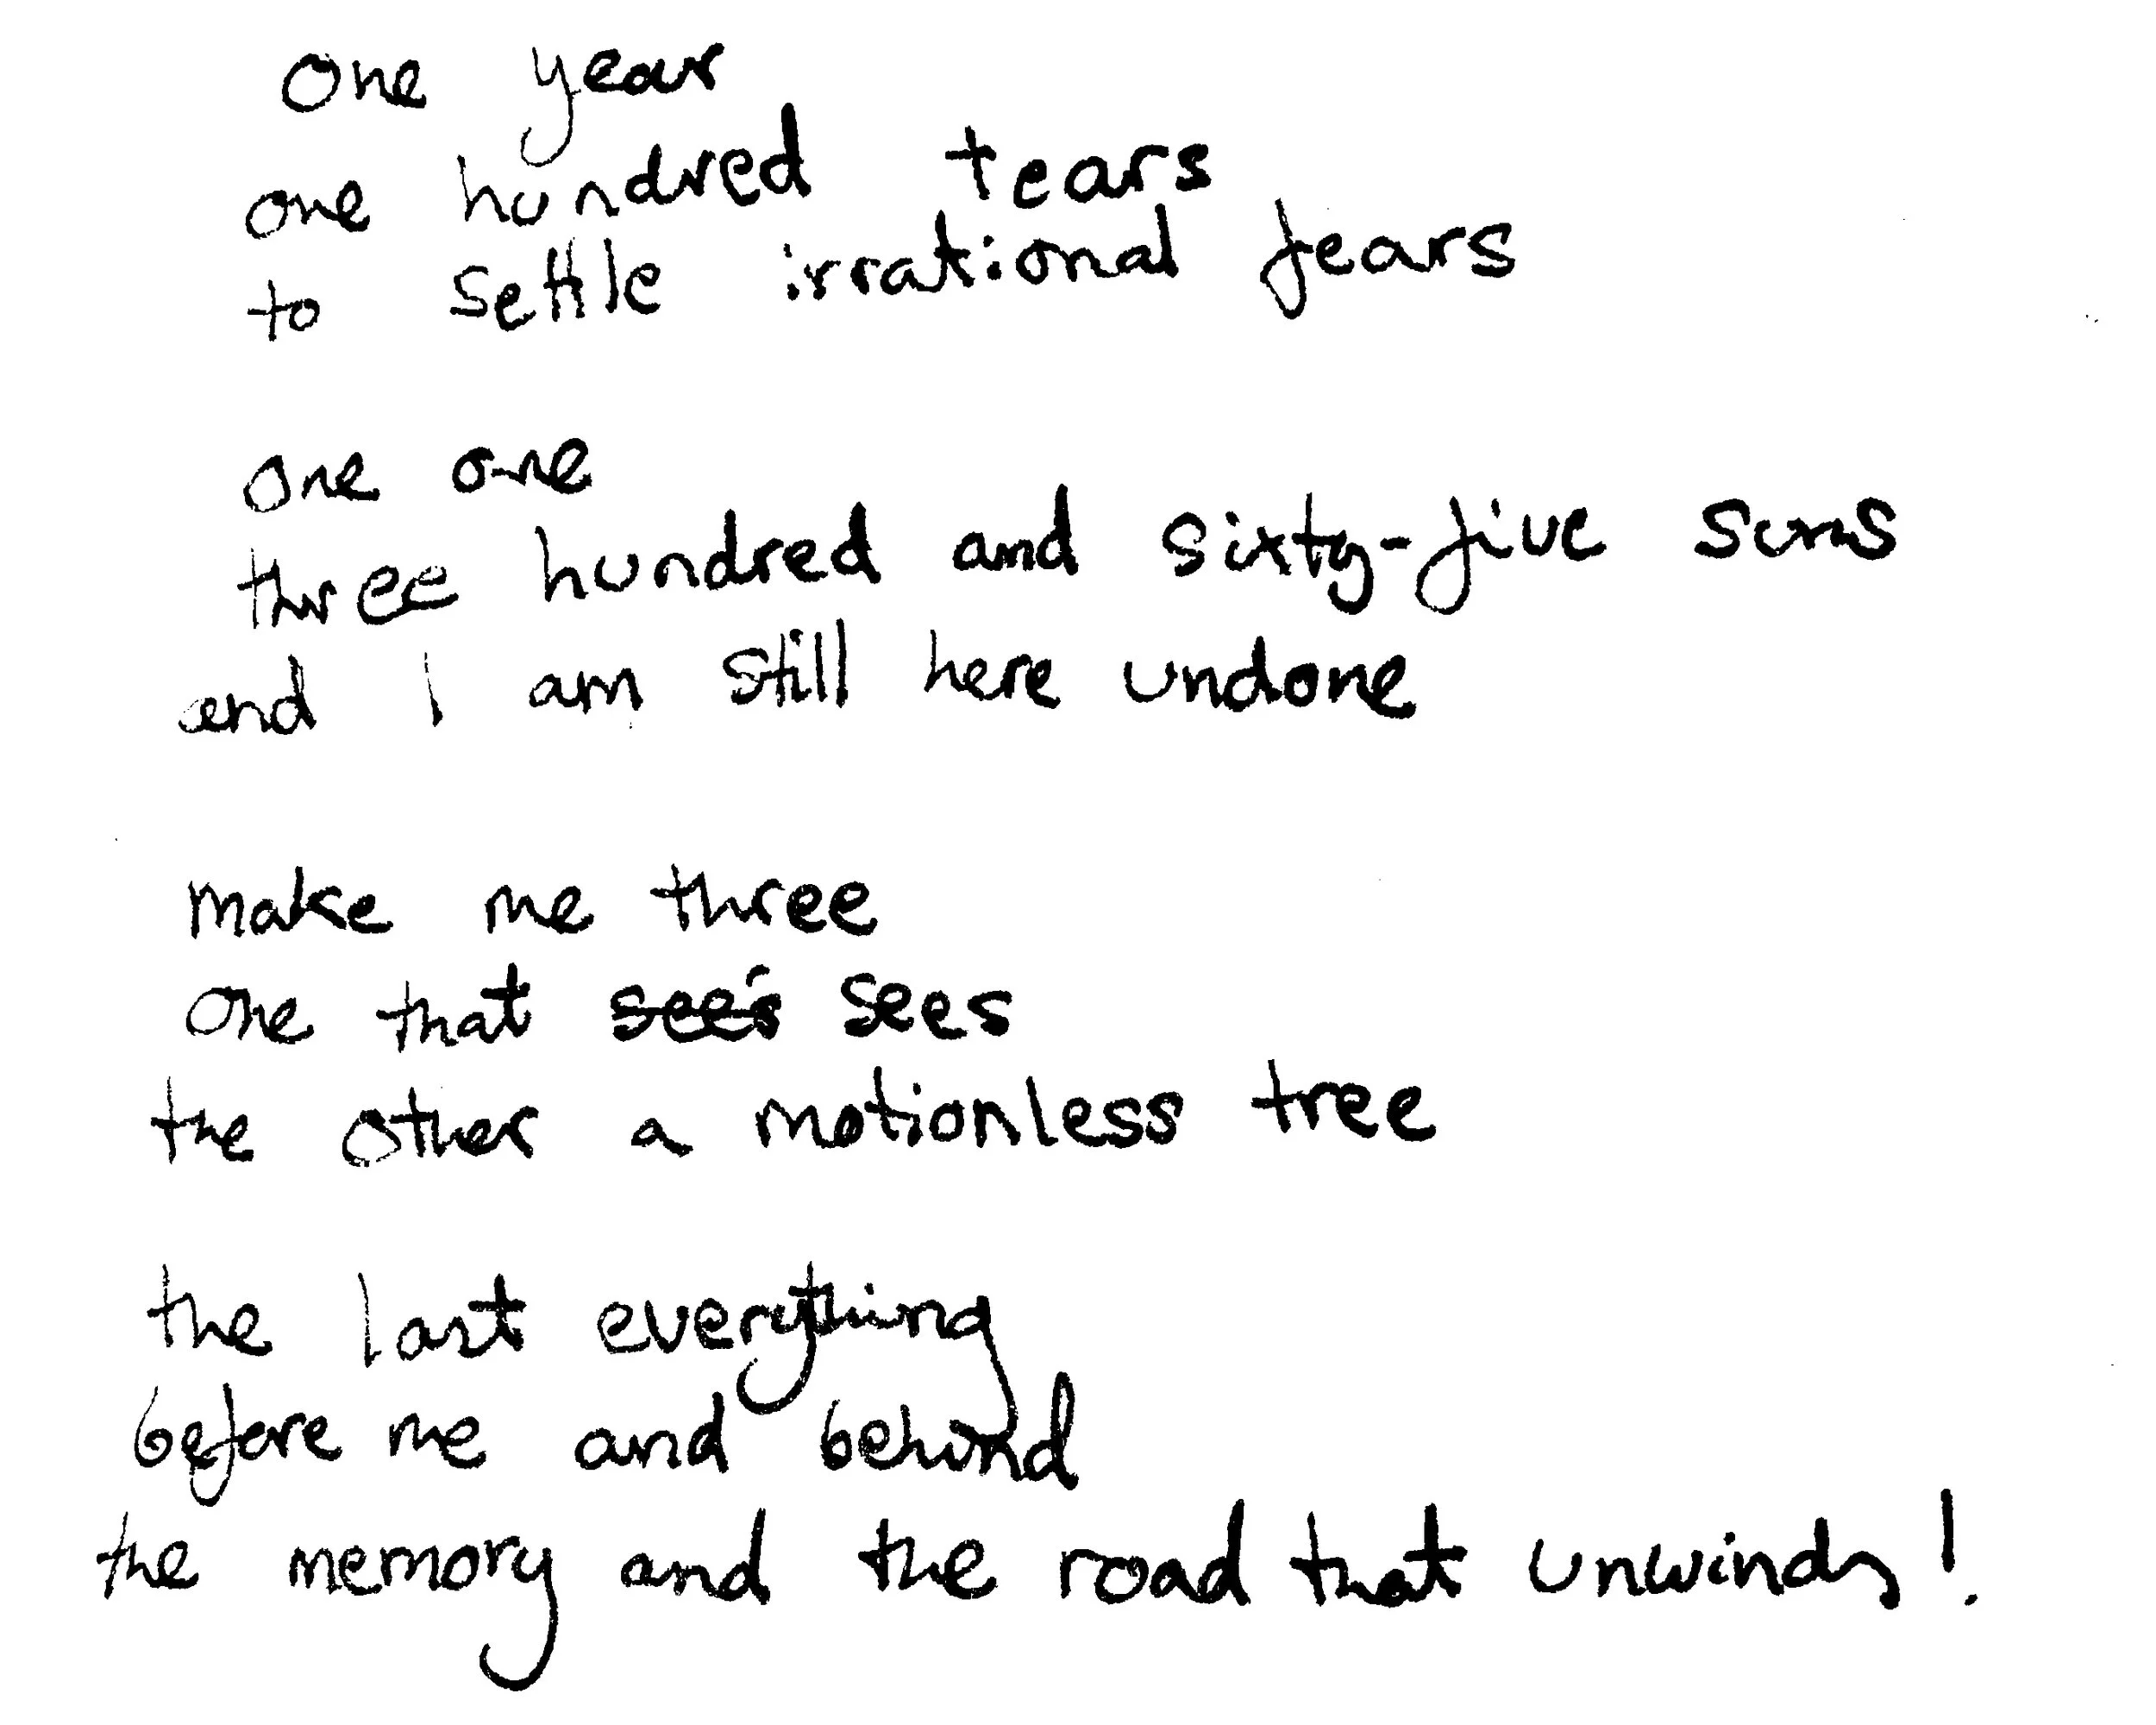 One year
one hundred tears
to settle irrational fears
one one
three hundred and sixty-five suns
and I am still here undone
make me three
one that see's sees
the other a motionless tree
the last everything
before me and behind
the memory and the road that unwinds!